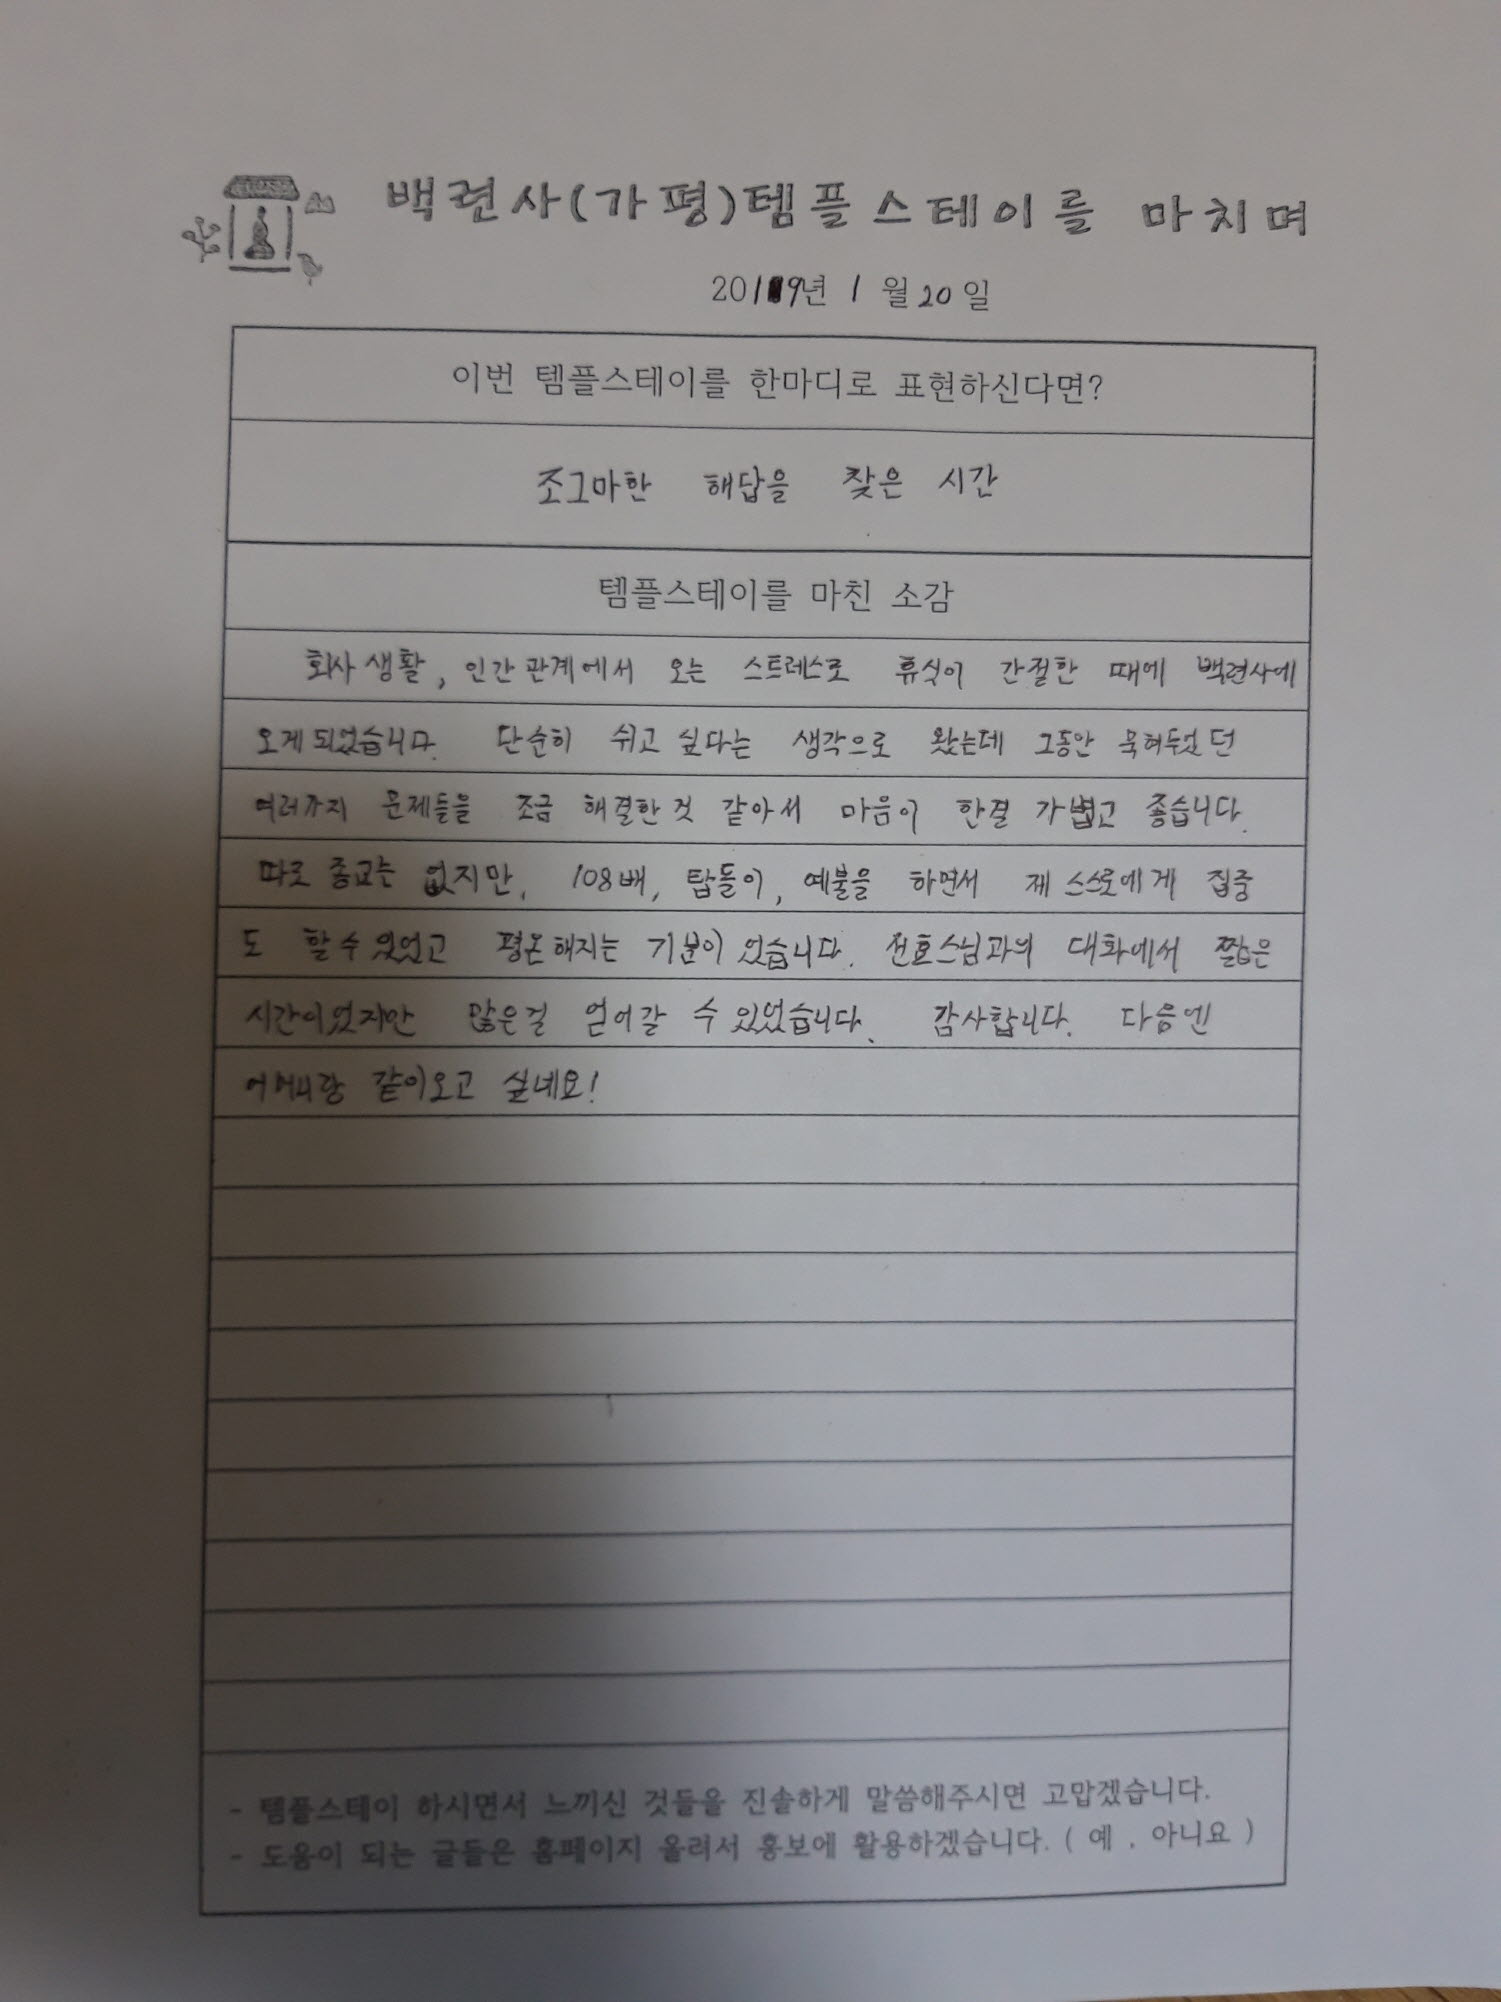 백련사(가평)템플스테이를 마치며
2019년 1월 20일
이번 템플스테이를 한마디로 표현하신다면?
조그마한 해답을 찾은 시간
템플스테이를 마친 소감
회사 생활, 인간관계에서 오는 스트레스로 휴식이 간절한 때에 백련사에
오게 되었습니다. 단순히 쉬고 싶다는 생각으로 왔는데 그동안 묵혀두었던
여러가지 문제들을 조금 해결한 것 같아서 마음이 한결 가볍고 좋습니다.
따로 종교는 없지만, 108배, 탑돌이, 예불을 하면서 제 스스로에게 집중
도 할 수 있었고 평온해지는 기분이었습니다. 전효스님과의 대화에서 짧은
시간이었지만 많은걸 얻어갈 수 있었습니다. 감사합니다. 다음엔
어머니랑 같이오고 싶네요!
- 템플스테이 하시면서 느끼신 것들을 진솔하게 말씀해주시면 고맙겠습니다.
- 도움이 되는 글들은 홈페이지 올려서 홍보에 활용하겠습니다. ( 예 . 아니요 )